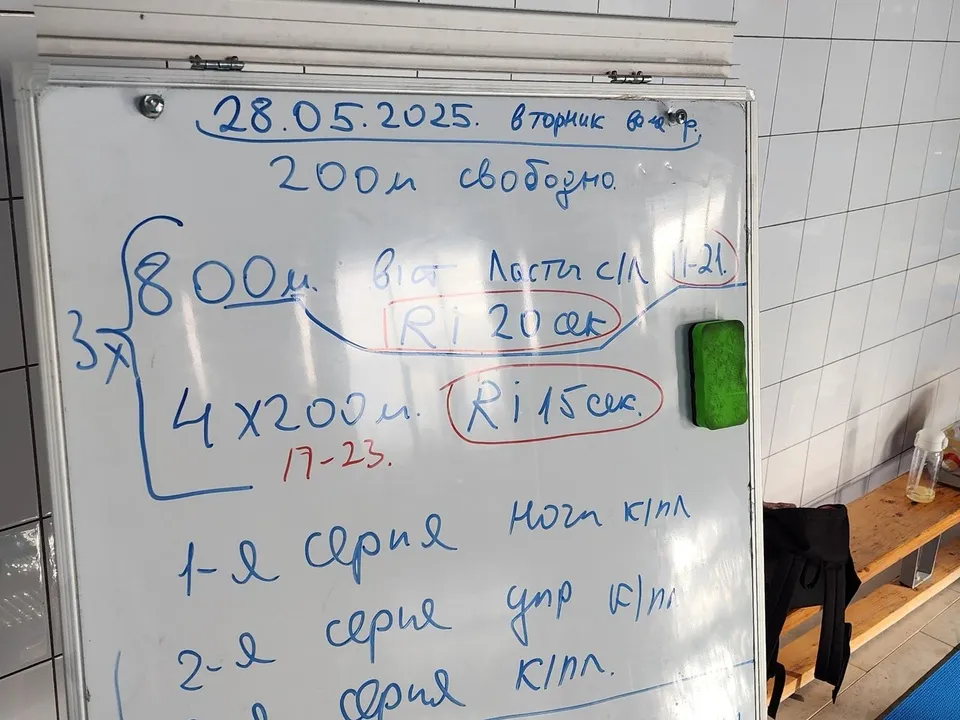 28.05.2025. вторник вечер.
200м свободно.
3х
800м. в/ст Ласты с/л 11-21.
Ri 20 сек
4х200м. Ri 15 сек.
17-23.
1-я серия ноги к/пл
2-я серия упр к/пл
серия к/пл.